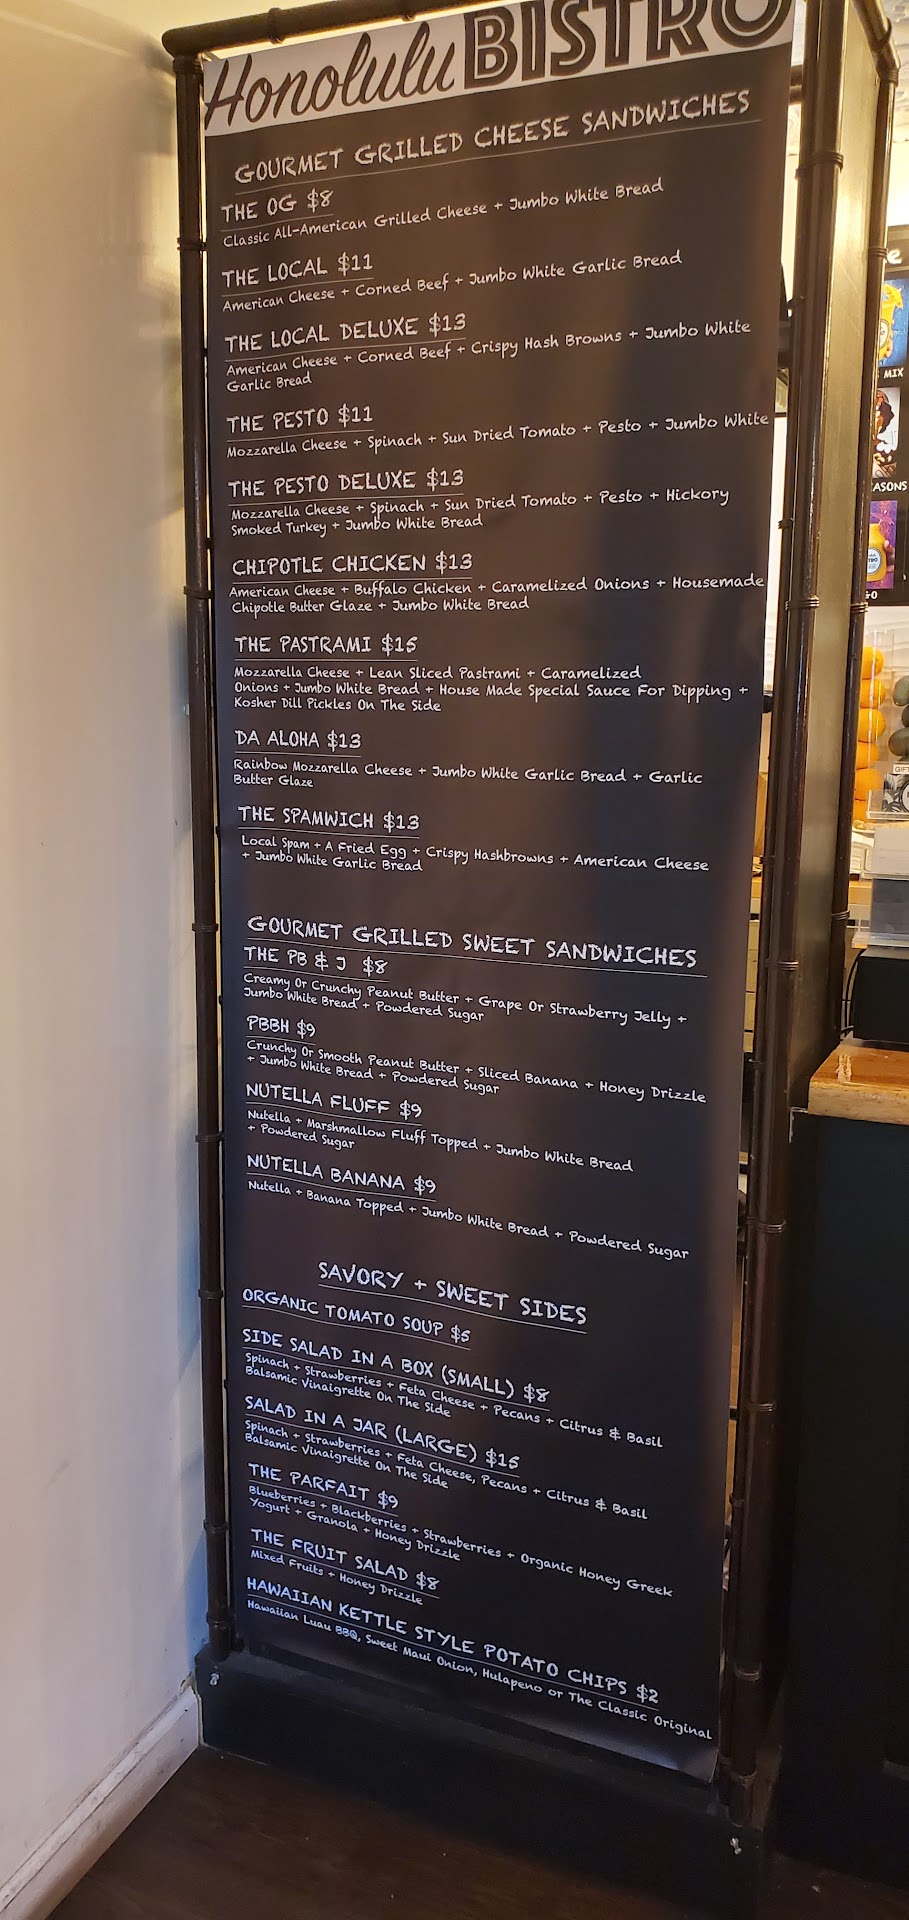 Honolulu BISTRO
GOURMET GRILLED CHEESE SANDWICHES
THE OG $8
Classic All-American Grilled Cheese + Jumbo White Bread
THE LOCAL $11
American Cheese + Corned Beef + Jumbo White Garlic Bread
THE LOCAL DELUXE $13
American Cheese + Corned Beef + Crispy Hash Browns + Jumbo White
Garlic Bread
THE PESTO $11
Mozzarella Cheese + Spinach + Sun Dried Tomato + Pesto + Jumbo White
THE PESTO DELUXE $13
Mozzarella Cheese + Spinach + Sun Dried Tomato + Pesto + Hickory
Smoked Turkey + Jumbo White Bread
CHIPOTLE CHICKEN $13
American Cheese + Buffalo Chicken + Caramelized Onions + Housemade
Chipotle Butter Glaze + Jumbo White Bread
THE PASTRAMI $15
Mozzarella Cheese + Lean Sliced Pastrami + Caramelized
Onions + Jumbo White Bread + House Made Special Sauce For Dipping +
Kosher Dill Pickles On The Side
DA ALOHA $13
Rainbow Mozzarella Cheese + Jumbo White Garlic Bread + Garlic
Butter Glaze
THE SPAMWICH $13
Local Spam + A Fried Egg + Crispy Hashbrowns + American Cheese
+ Jumbo White Garlic Bread
GOURMET GRILLED SWEET SANDWICHES
THE PB & J $8
Creamy Or Crunchy Peanut Butter + Grape Or Strawberry Jelly +
Jumbo White Bread + Powdered Sugar
PBBH $9
Crunchy Or Smooth Peanut Butter + Sliced Banana + Honey Drizzle
+ Jumbo White Bread + Powdered Sugar
NUTELLA FLUFF $9
Nutella + Marshmallow Fluff Topped + Jumbo White Bread
+ Powdered Sugar
NUTELLA BANANA $9
Nutella + Banana Topped + Jumbo White Bread + Powdered Sugar
SAVORY + SWEET SIDES
ORGANIC TOMATO SOUP $5
SIDE SALAD IN A BOX (SMALL) $8
Spinach + Strawberries + Feta Cheese + Pecans + Citrus & Basil
Balsamic Vinaigrette On The Side
SALAD IN A JAR (LARGE) $15
Spinach + Strawberries + Feta Cheese, Pecans + Citrus & Basil
Balsamic Vinaigrette On The Side
THE PARFAIT $9
Blueberries + Blackberries + Strawberries + Organic Honey Greek
Yogurt + Granola + Honey Drizzle
THE FRUIT SALAD $8
Mixed Fruits + Honey Drizzle
HAWAIIAN KETTLE STYLE POTATO CHIPS $2
Hawaiian Luau BBQ, Sweet Maui Onion, Hulapeno or The Classic Original
MIX